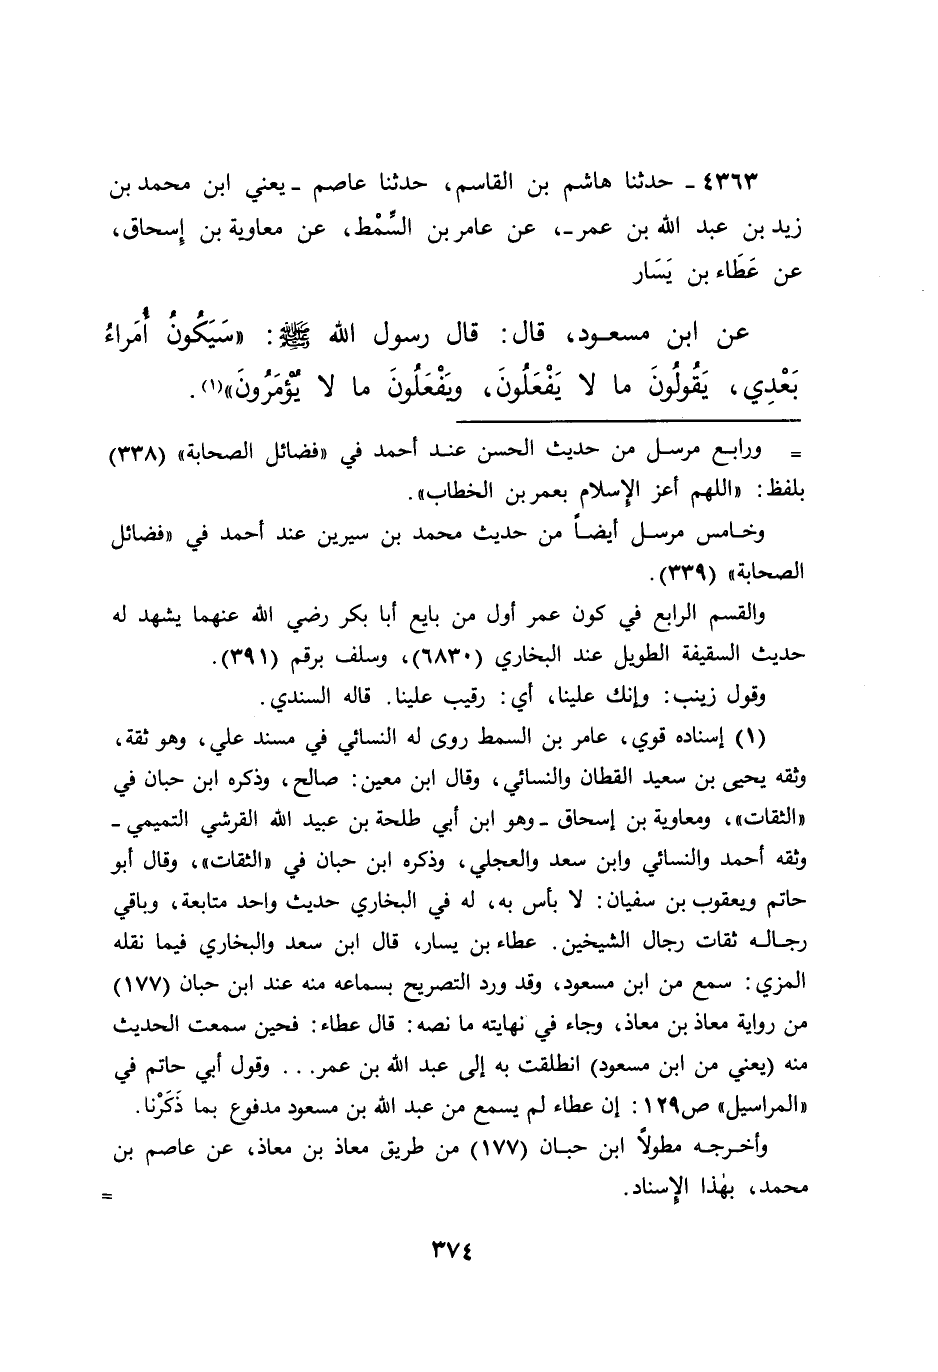 ٤٣٦٣ - حدثنا هاشم بن القاسم، حدثنا عاصم - يعني ابن محمد بن
زيد بن عبد الله بن عمر -، عن عامر بن السِّمْط، عن معاوية بن إسحاق،
عن عَطَاء بن يَسَار
عن ابن مسعود، قال: قال رسول الله ﷺ: «سَيَكُونُ أُمَراءُ
بَعْدِي، يَقُولُونَ ما لا يَفْعَلُونَ، ويَفْعَلُونَ ما لا يُؤْمَرُونَ»(١).
= ورابع مرسل من حديث الحسن عند أحمد في «فضائل الصحابة» (٣٣٨)
بلفظ: «اللهم أعز الإسلام بعمر بن الخطاب».
وخامس مرسل أيضاً من حديث محمد بن سيرين عند أحمد في «فضائل
الصحابة» (٣٣٩).
والقسم الرابع في كون عمر أول من بايع أبا بكر رضي الله عنهما يشهد له
حديث السقيفة الطويل عند البخاري (٦٨٣٠)، وسلف برقم (٣٩١).
وقول زينب: وإنك علينا، أي: رقيب علينا. قاله السندي.
(١) إسناده قوي، عامر بن السمط روى له النسائي في مسند علي، وهو ثقة،
وثقه يحيى بن سعيد القطان والنسائي، وقال ابن معين: صالح، وذكره ابن حبان في
«الثقات»، ومعاوية بن إسحاق - وهو ابن أبي طلحة بن عبيد الله القرشي التميمي -
وثقه أحمد والنسائي وابن سعد والعجلي، وذكره ابن حبان في «الثقات»، وقال أبو
حاتم ويعقوب بن سفيان: لا بأس به، له في البخاري حديث واحد متابعة، وباقي
رجاله ثقات رجال الشيخين. عطاء بن يسار، قال ابن سعد والبخاري فيما نقله
المزي: سمع من ابن مسعود، وقد ورد التصريح بسماعه منه عند ابن حبان (١٧٧)
من رواية معاذ بن معاذ، وجاء في نهايته ما نصه: قال عطاء: فحين سمعت الحديث
منه (يعني من ابن مسعود) انطلقت به إلى عبد الله بن عمر... وقول أبي حاتم في
«المراسيل» ص١٢٩: إن عطاء لم يسمع من عبد الله بن مسعود مدفوع بما ذَكَرْنا.
وأخرجه مطولاً ابن حبان (١٧٧) من طريق معاذ بن معاذ، عن عاصم بن
محمد، بهٰذا الإسناد. =
٣٧٤